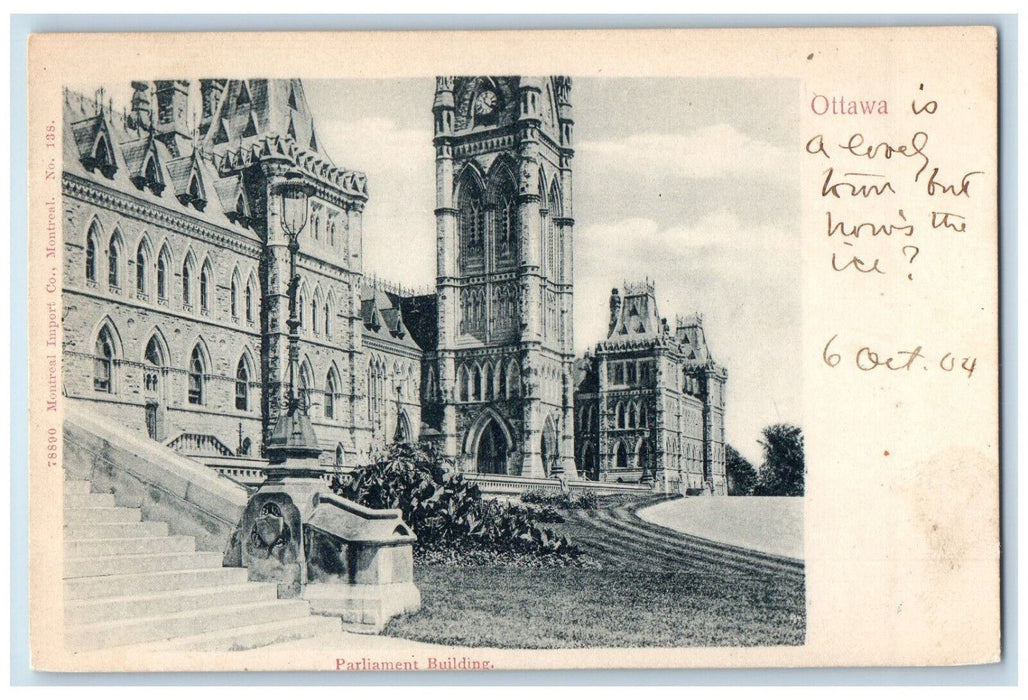 Ottawa is
a lovely
town but
how's the
ice?
6 Oct. 04
78890 Montreal Import Co., Montreal. No. 138.
Parliament Building.